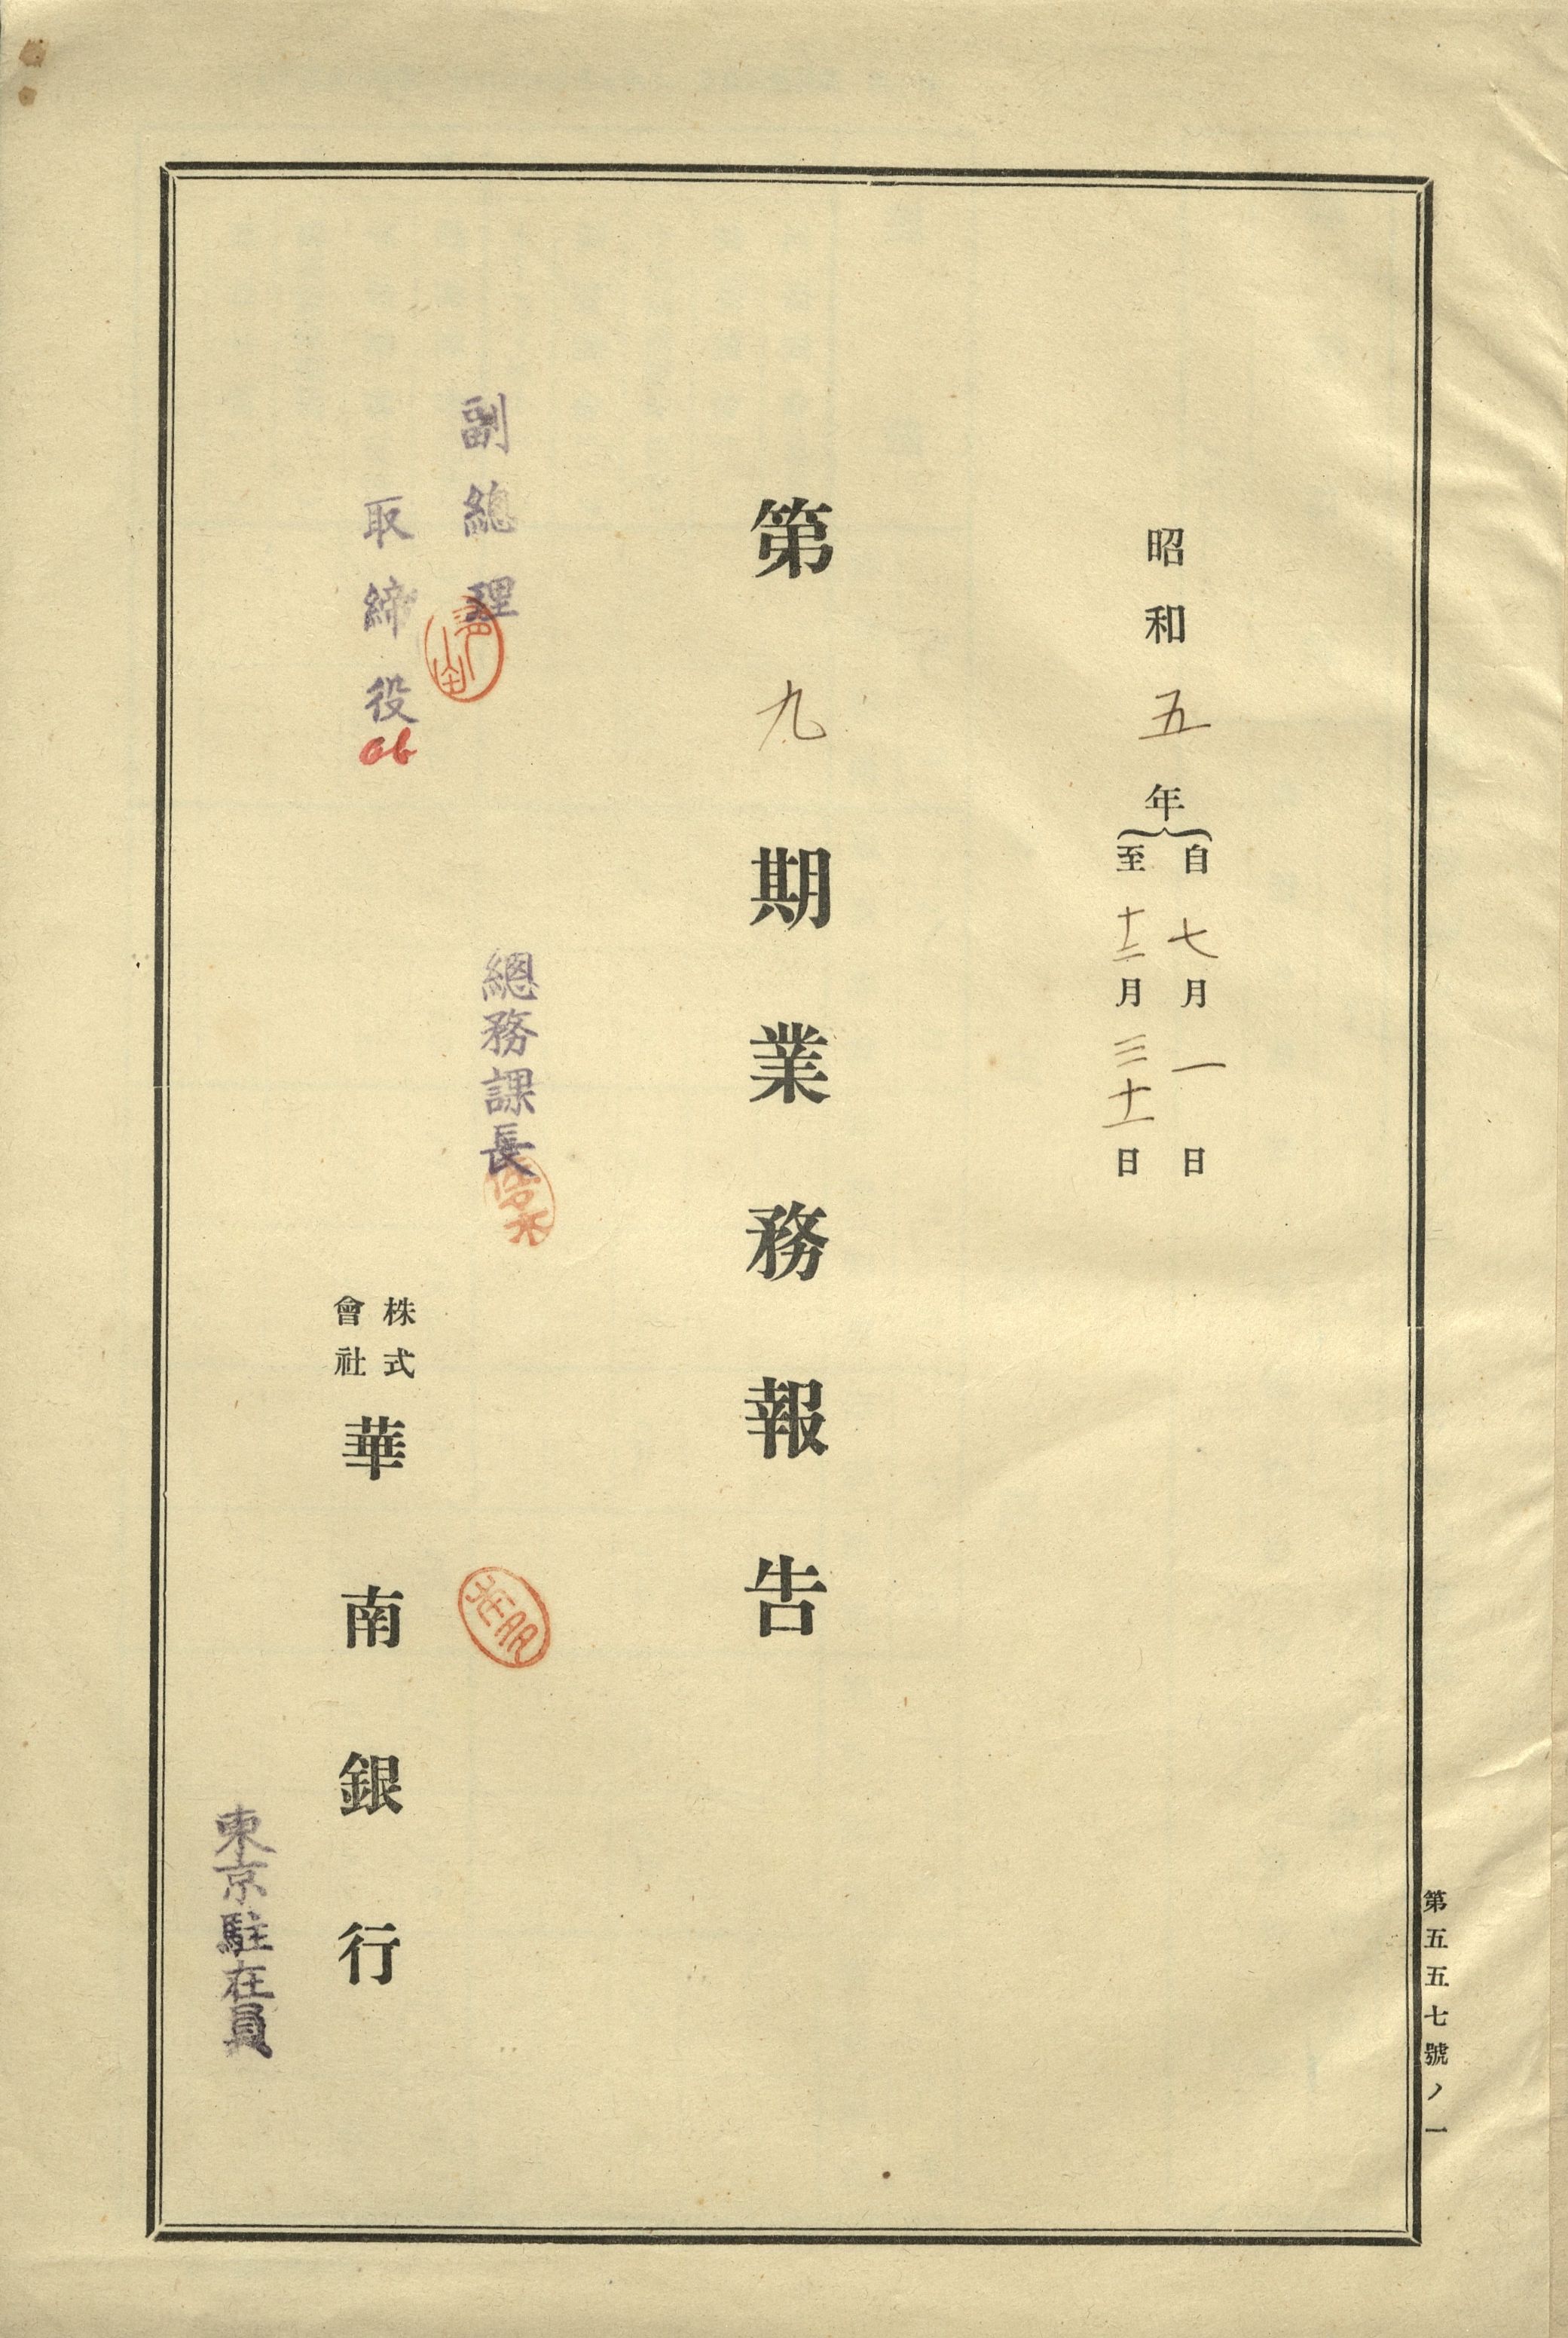 第五五七號ノ一
昭和五年
自七月一日
至十二月三十一日
第九期業務報告
副總理
取締役
總務課長
株式
會社
華南銀行
東京駐在員